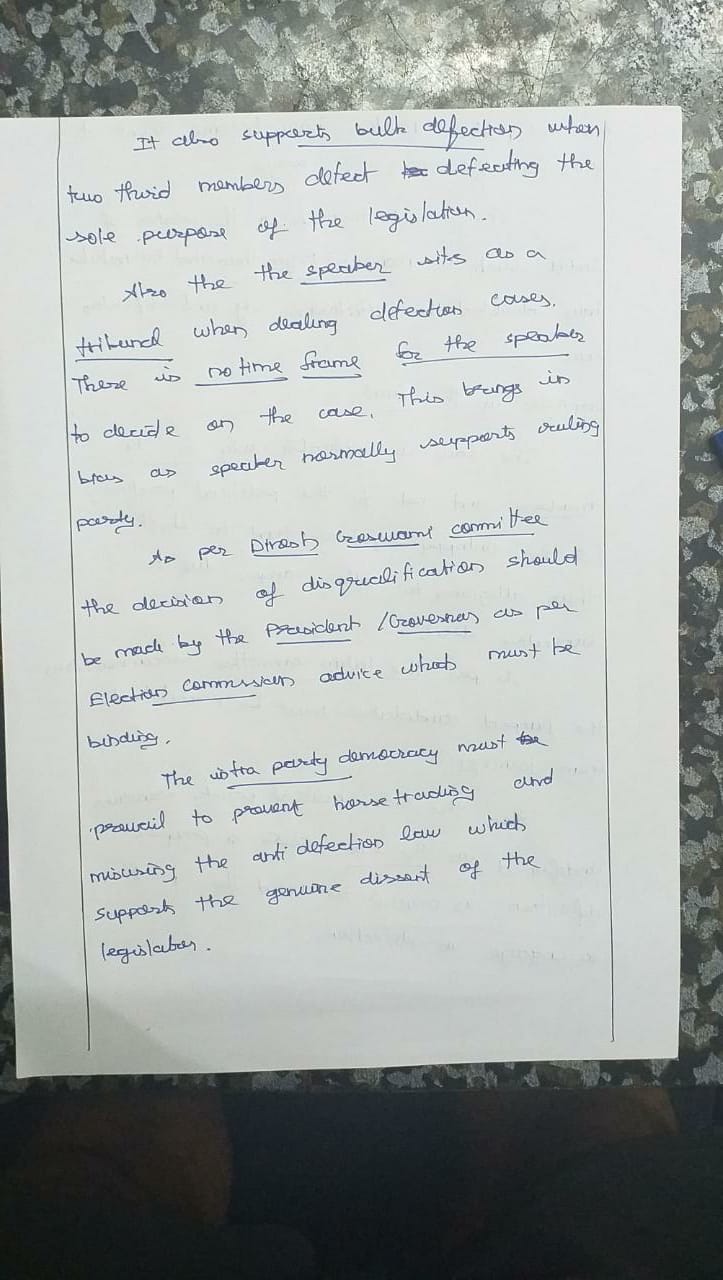 It also supports bulk defection when
two thrid members defect defeating the
sole purpose of the legislation.
Also the the speaker sits as a
tribunal when dealing defection cases.
There is no time frame for the speaker
to decide on the case. This brings in
bias as speaker normally supports ruling
party.
As per Dinesh Goswami committee
the decision of disqualification should
be made by the President / Governor as per
Election commission advice which must be
binding.
The intra party democracy must
prevail to prevent horse trading and
misusing the anti defection law which
supports the genuine dissent of the
legislator.